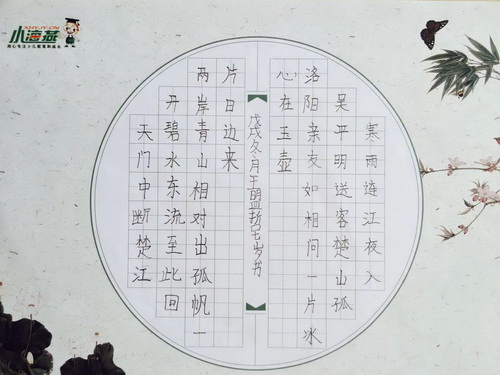 小海燕
XHYJY.CN
用心专注少儿教育和成长
寒雨连江夜入
吴平明送客楚山孤
洛阳亲友如相问一片冰
心在玉壶
天门中断楚江
开碧水东流至此回
两岸青山相对出孤帆一
片日边来
戊戌冬月王萌七岁书